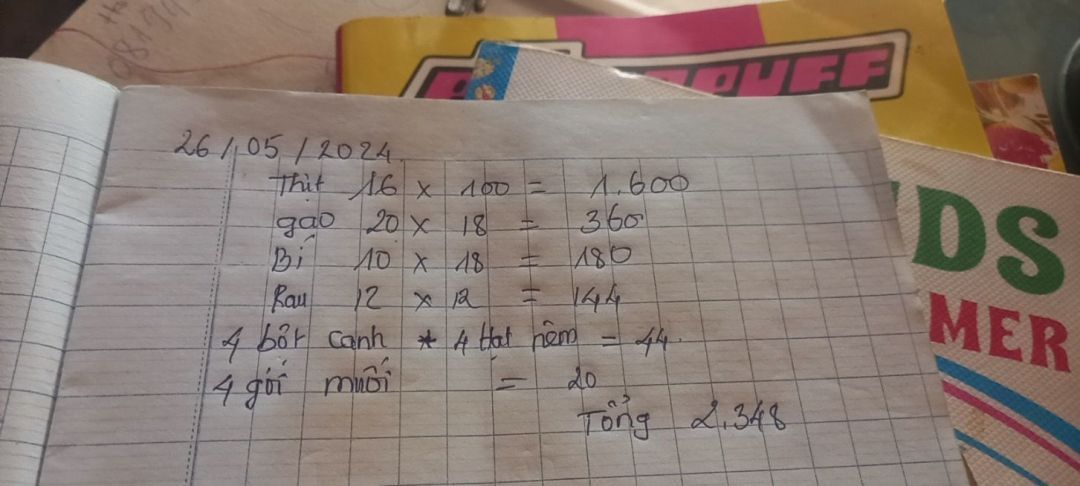 26/05/2024
Thịt 16 x 100 = 1.600
gạo 20 x 18 = 360
Bí 10 x 18 = 180
Rau 12 x 12 = 144
4 bột canh * 4 Hạt nêm = 44.
4 gói muối = 20
Tổng 2.348
DS
MER